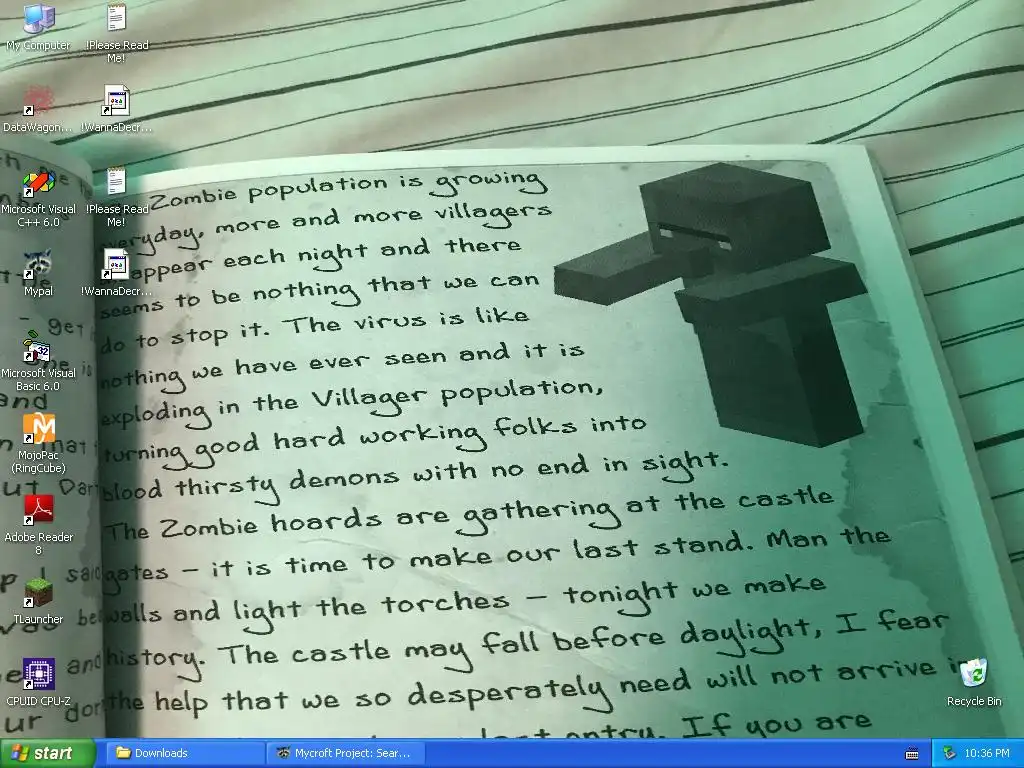 My Computer
!Please Read
Me!
DataWagon...
!WannaDecr...
Microsoft Visual
C++ 6.0
!Please Read
Me!
Mypal
!WannaDecr...
Microsoft Visual
Basic 6.0
MojoPac
(RingCube)
Adobe Reader
8
TLauncher
CPUID CPU-Z
Recycle Bin
Zombie population is growing
everyday, more and more villagers
appear each night and there
seems to be nothing that we can
do to stop it. The virus is like
nothing we have ever seen and it is
exploding in the Villager population,
turning good hard working folks into
blood thirsty demons with no end in sight.
The Zombie hoards are gathering at the castle
gates – it is time to make our last stand. Man the
walls and light the torches – tonight we make
history. The castle may fall before daylight, I fear
the help that we so desperately need will not arrive
entry. If you are
start
Downloads
Mycroft Project: Sear...
10:36 PM